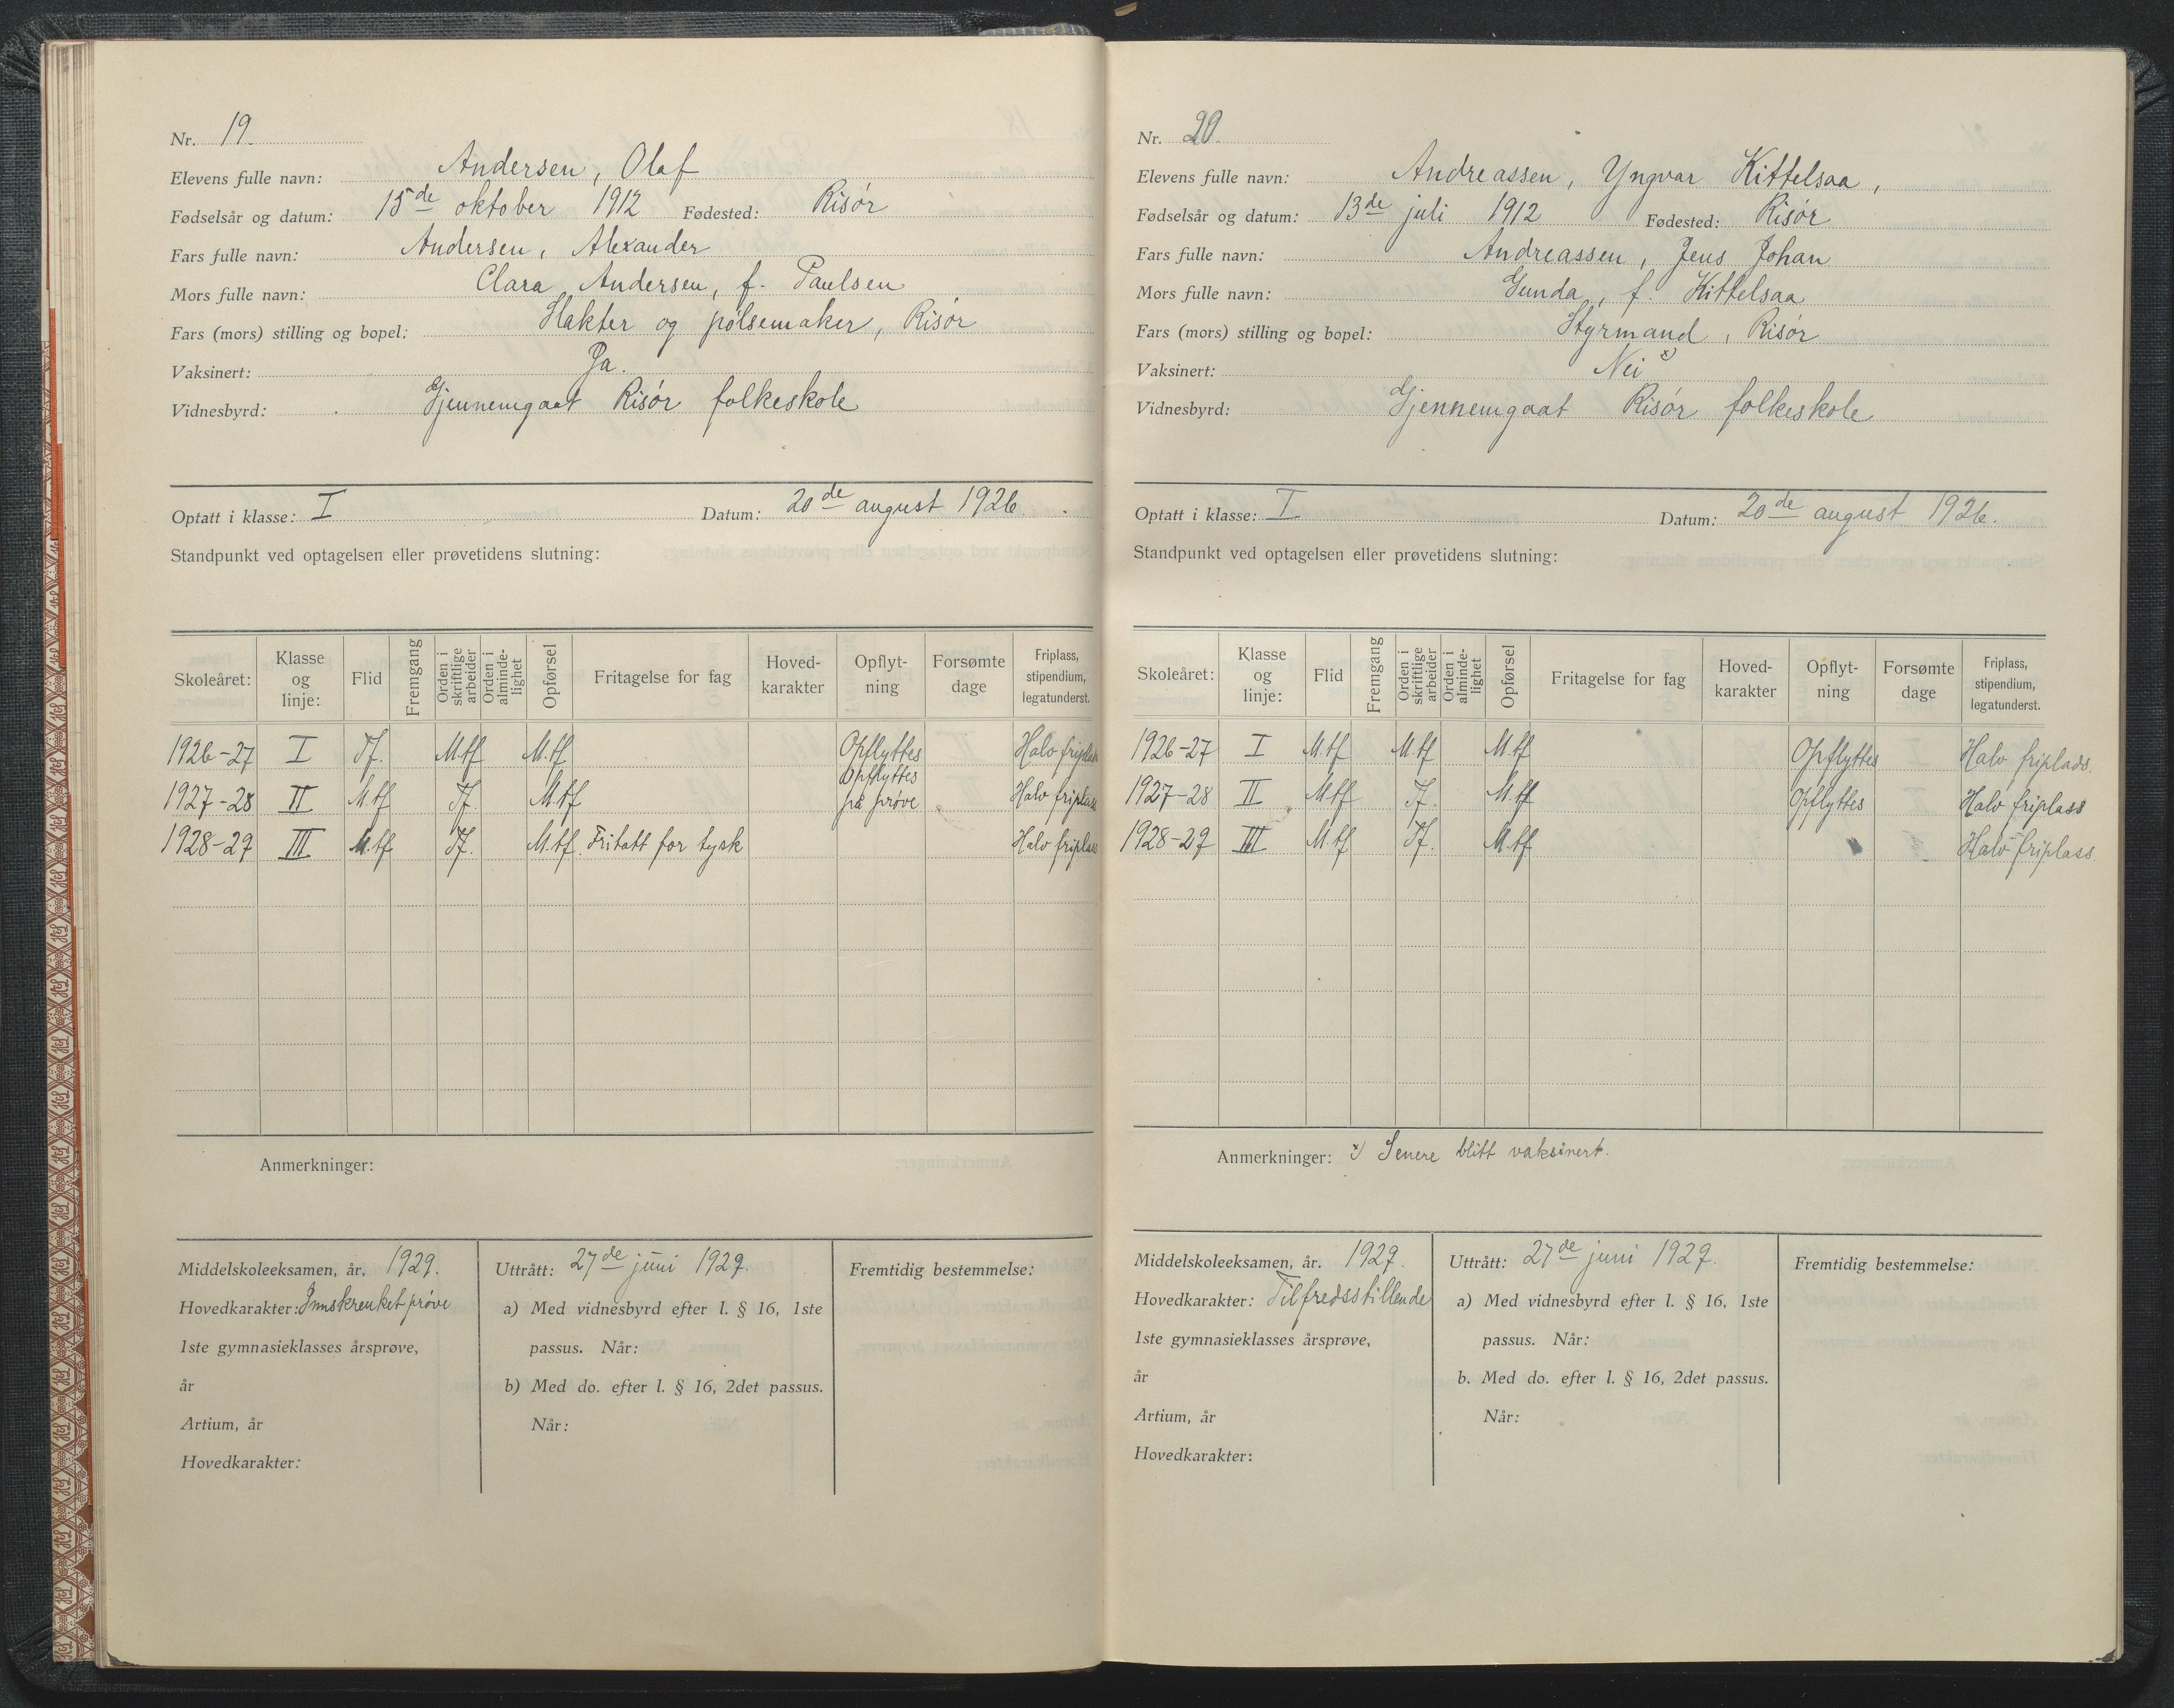 Nr. 19.
Elevens fulle navn: Andersen, Olaf
Fødselsår og datum: 15de oktober 1912 Fødested: Risør
Fars fulle navn: Andersen, Alexander
Mors fulle navn: Clara Andersen, f. Paulsen
Fars (mors) stilling og bopel: Slakter og pølsemaker, Risør
Vaksinert: Ja.
Vidnesbyrd: Gjennemgaat Risør folkeskole
Optatt i klasse: I Datum: 20de august 1926.
Standpunkt ved optagelsen eller prøvetidens slutning:
Skoleåret: Klasse og linje: Flid Fremgang Orden i skriftlige arbeider Orden i almindelighet Opførsel Fritagelse for fag Hovedkarakter Opflytning Forsømte dage Friplass, stipendium, legatunderst.
1926-27 I Tf. M.tf M.tf Opflyttes Halv friplads
1927-28 II M.tf Tf. M.tf Opflyttes på prøve Halv friplass
1928-29 III M.tf Tf. M.tf. Fritatt for tysk Halv friplass
Anmerkninger:
Middelskoleeksamen, år, 1929.
Hovedkarakter: Innskrenket prøve
1ste gymnasieklasses årsprøve,
år
Artium, år
Hovedkarakter:
Uttrått: 27de juni 1929.
a) Med vidnesbyrd efter l. § 16, 1ste
passus. Når:
b) Med do. efter l. § 16, 2det passus.
Når:
Fremtidig bestemmelse:
Nr. 20.
Elevens fulle navn: Andreassen, Yngvar Kittelsaa,
Fødselsår og datum: 13de juli 1912 Fødested: Risør
Fars fulle navn: Andreassen, Jens Johan
Mors fulle navn: Gunda, f. Kittelsaa
Fars (mors) stilling og bopel: Styrmand, Risør
Vaksinert: Nei x)
Vidnesbyrd: Gjennemgaat Risør folkeskole
Optatt i klasse: I Datum: 20de august 1926.
Standpunkt ved optagelsen eller prøvetidens slutning:
Skoleåret: Klasse og linje: Flid Fremgang Orden i skriftlige arbeider Orden i almindelighet Opførsel Fritagelse for fag Hovedkarakter Opflytning Forsømte dage Friplass, stipendium, legatunderst.
1926-27 I M.tf M.tf M.tf Opflyttes Halv friplads.
1927-28 II M.tf Tf. M.tf Opflyttes Halv friplass
1928-29 III M.tf Tf. M.tf Halv friplass.
Anmerkninger: x) Senere blitt vaksinert.
Middelskoleeksamen, år. 1929.
Hovedkarakter: Tilfredsstillende
1ste gymnasieklasses årsprøve,
år
Artium, år
Hovedkarakter:
Uttrått: 27de juni 1929.
a) Med vidnesbyrd efter l. § 16, 1ste
passus. Når:
b. Med do. efter l. § 16, 2det passus.
Når:
Fremtidig bestemmelse: